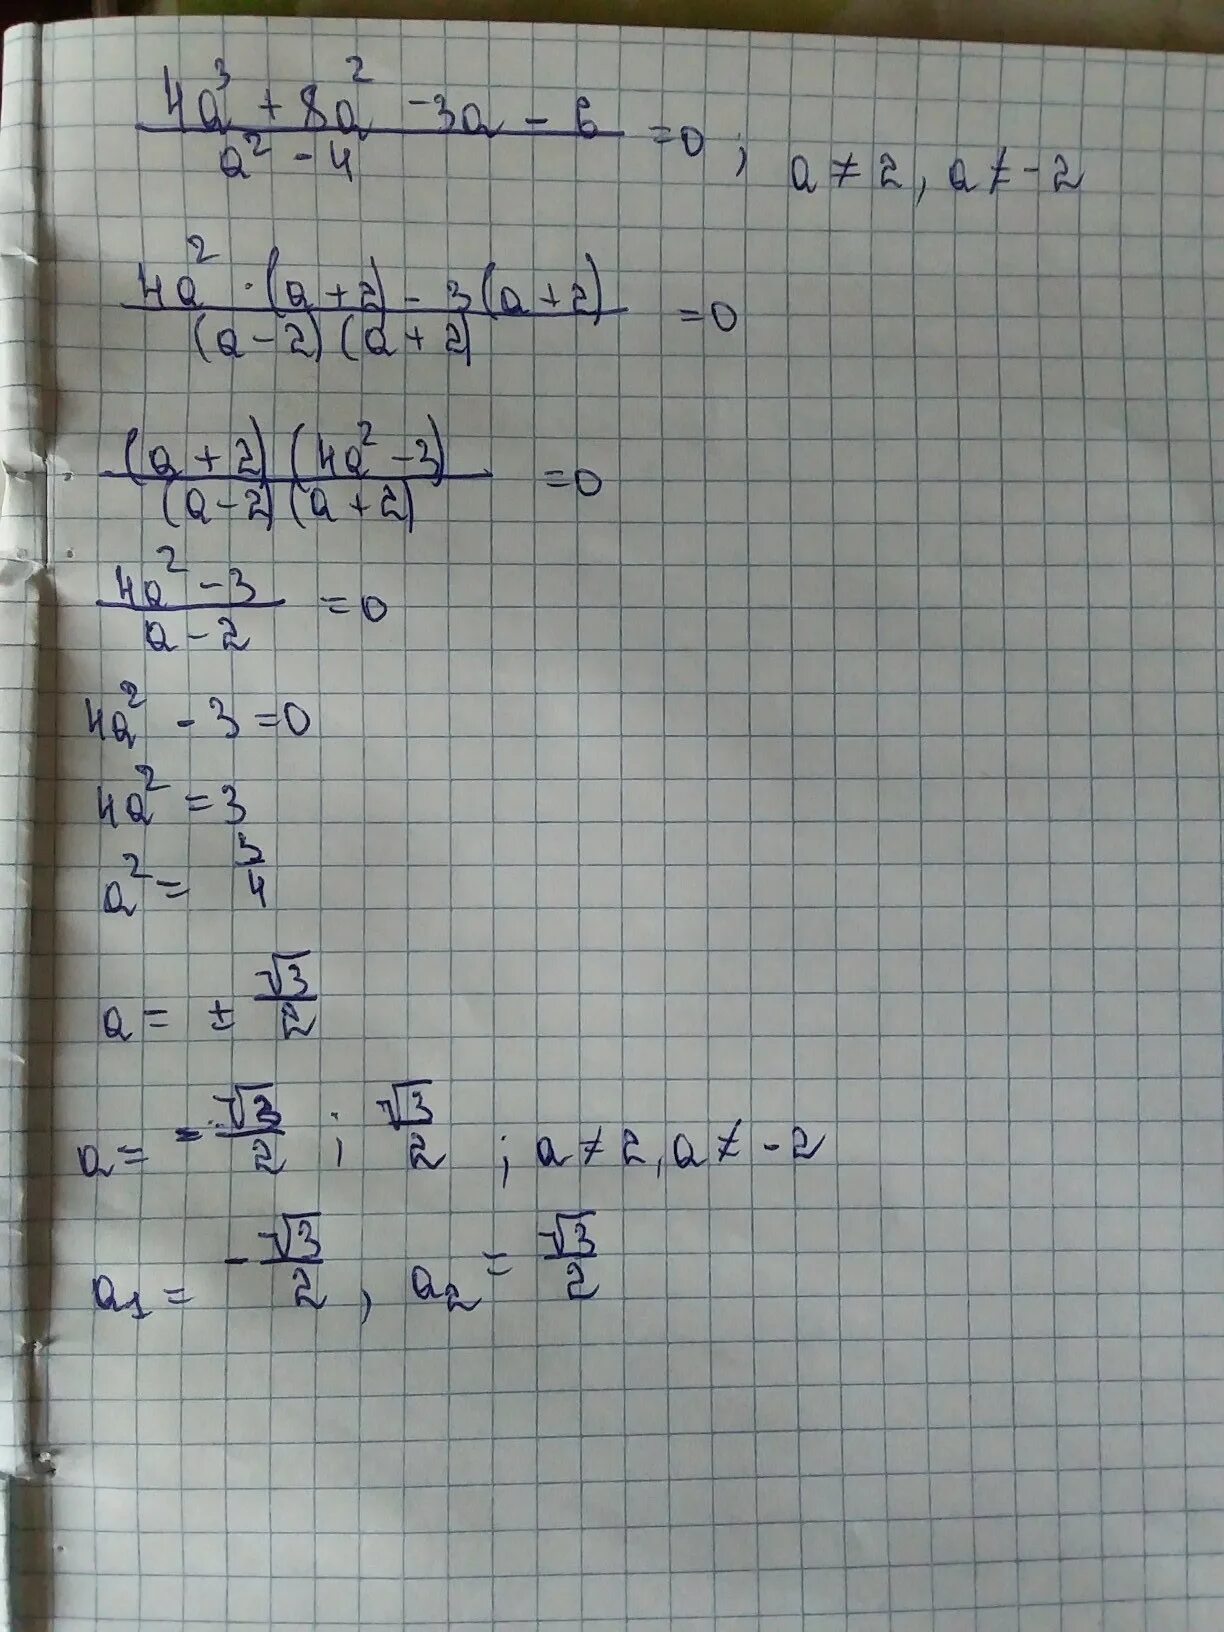 (4a³ + 8a² - 3a - 6)/(a² - 4) = 0; a ≠ 2, a ≠ -2
(4a² · (a + 2) - 3(a + 2))/((a - 2)(a + 2)) = 0
((a + 2)(4a² - 3))/((a - 2)(a + 2)) = 0
(4a² - 3)/(a - 2) = 0
4a² - 3 = 0
4a² = 3
a² = 3/4
a = ± √3/2
a = -√3/2; √3/2; a ≠ 2, a ≠ -2
a₁ = -√3/2, a₂ = √3/2